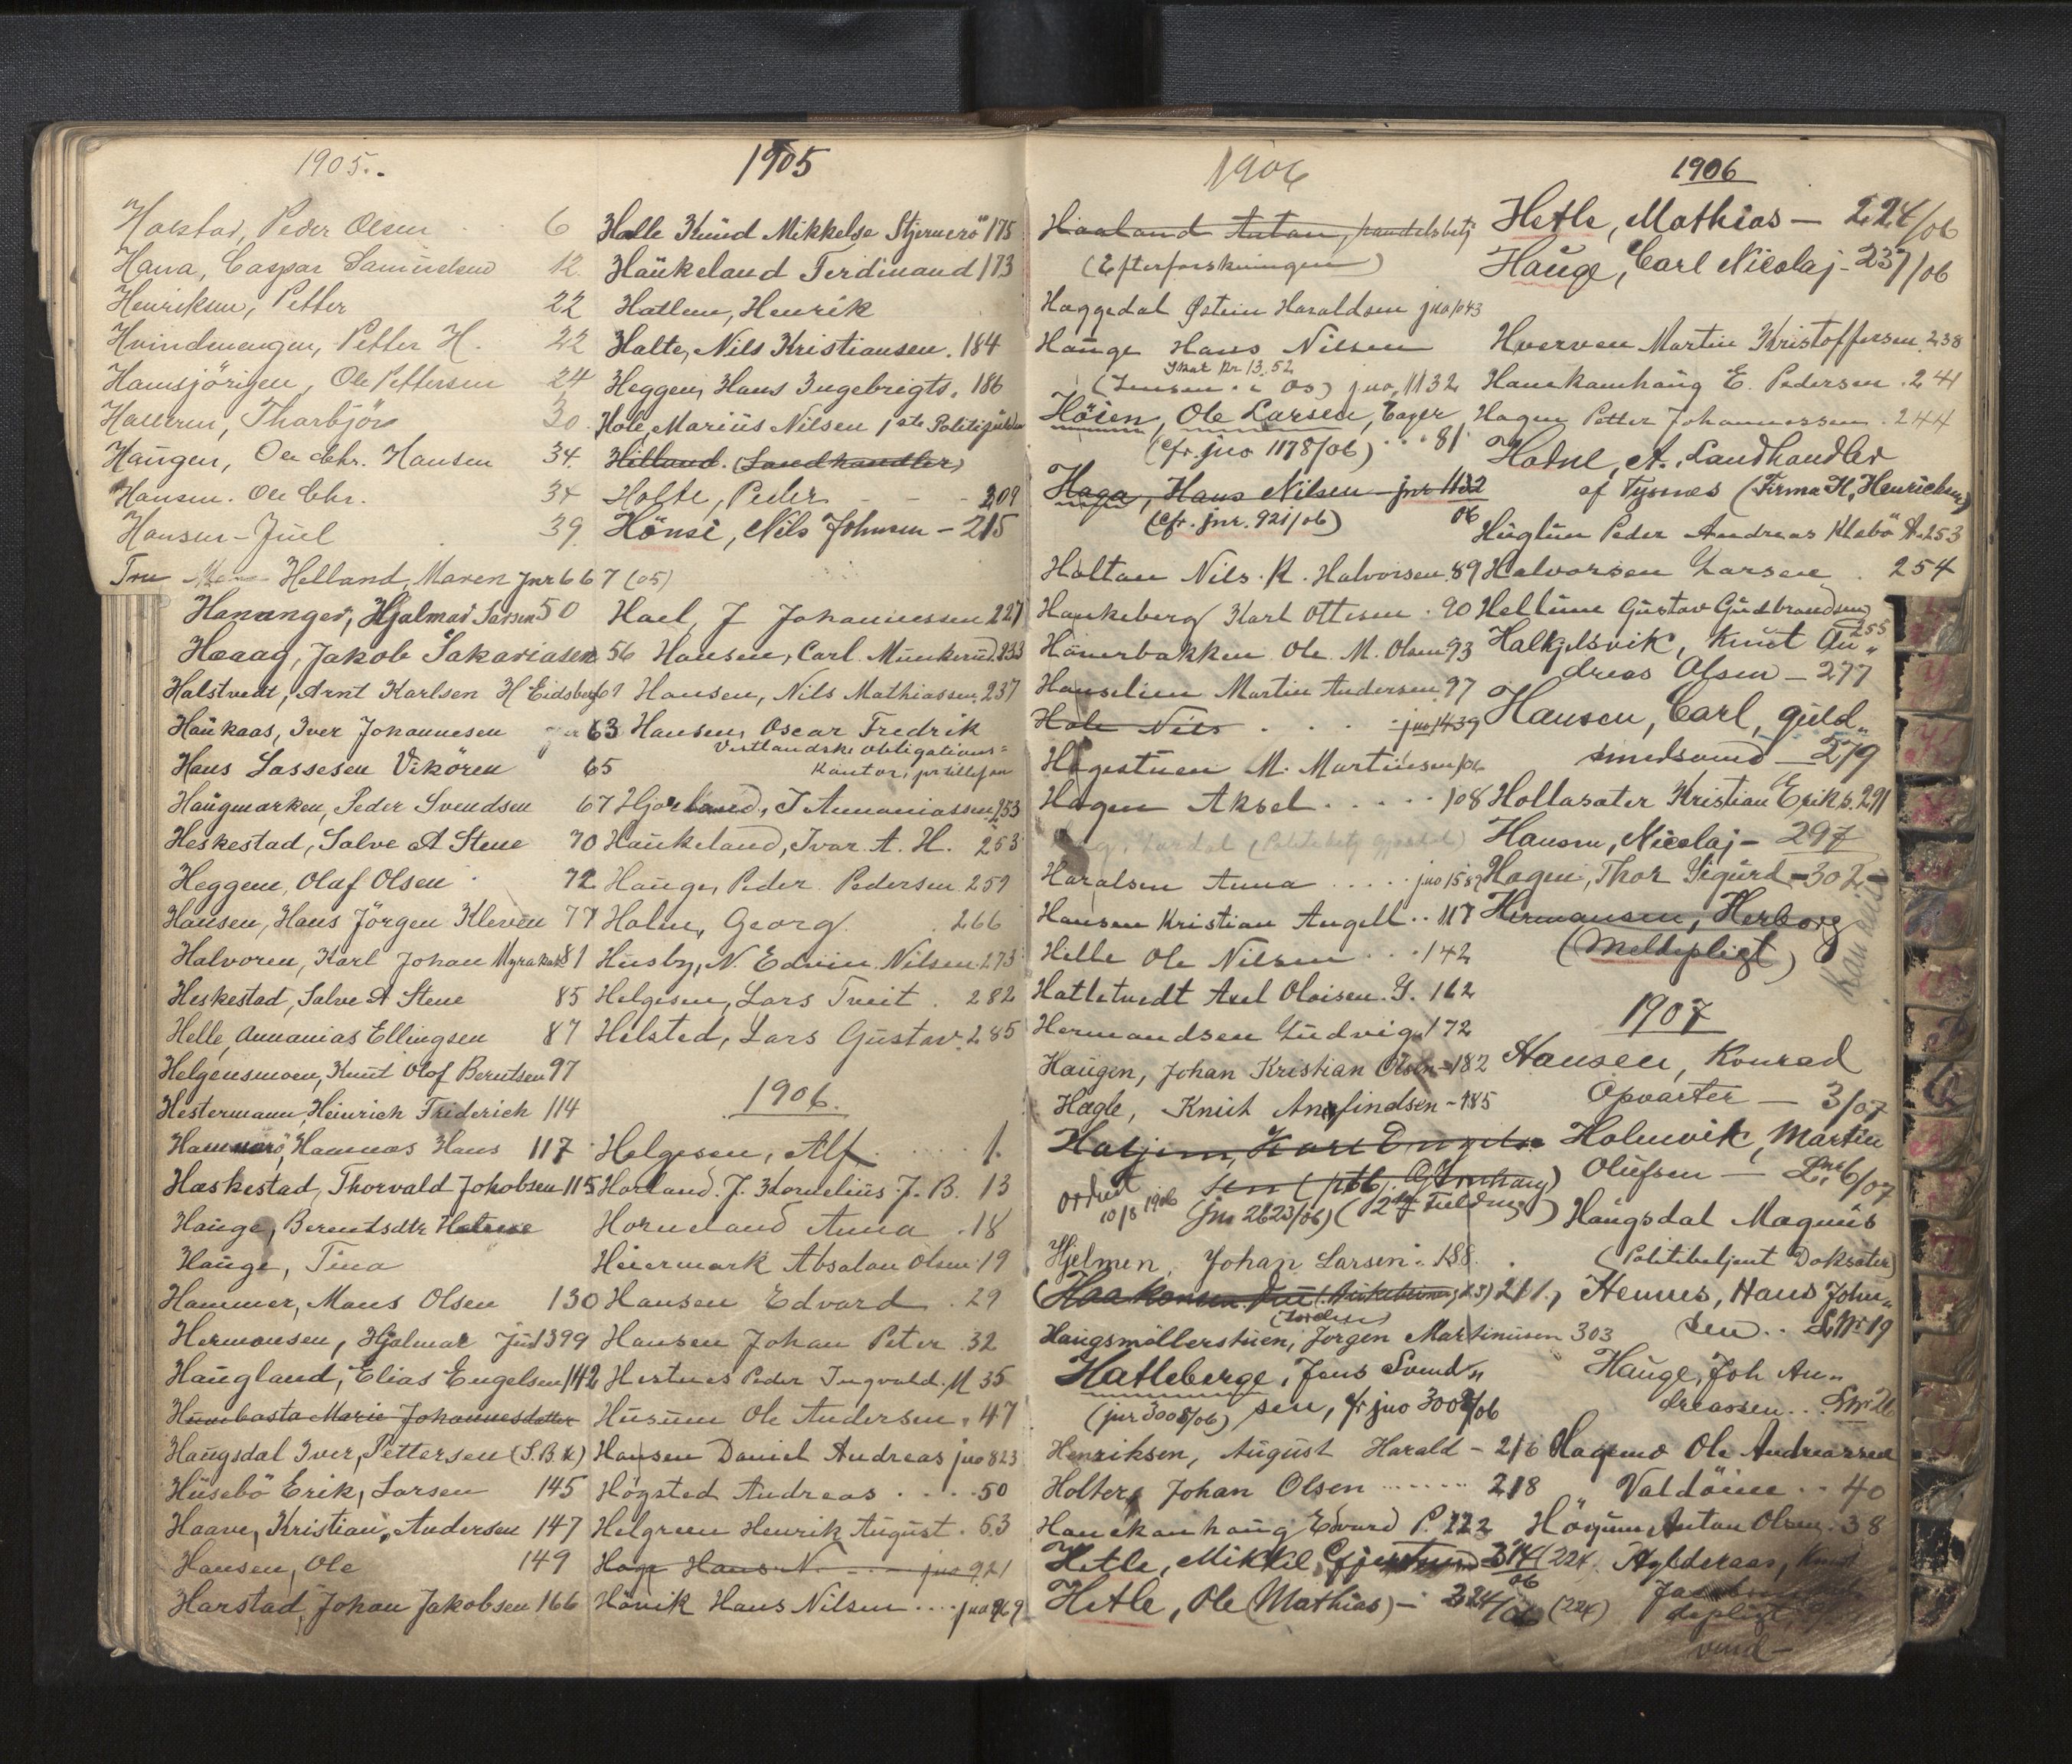 1905.
Peder Olsen 6
Hana, Caspar Samuelsen 12
Henriksen, Petter 22
Hvindenengen, Petter H. 22
Hamsjörigen, Ole Pettersen 24
Thorbjörn 30
Haugen, Ole Chr. Hansen 34.
Hansen. Ole Chr. 34
Hansen-Juel 39
Helland, Maren Jnr 667 (05)
Hananger, Hjalmar Larsen 50
Haaag, Jakob Sakariasen 56
Halstvedt, Arnt Karlsen H Eidsberg 61
Haukaas, Iver Johannesen 63
Hans Lassesen Vikören 65
Haugmarken, Peder Svendsen 67
Heskestad, Salve A Stene 70
Heggem, Olaf Olsen 72
Hansen, Hans Jörgen Kleven 77
Halvoren, Karl Johan 81
Heskestad, Salve A Stene 85
Helle, Annanias Ellingsen 87
Helgensmoen, Knut Olof Berntsen 97
Hestermann, Heinrich Friderich 114
Hammerö, Hannas Hans 117
Hæskestad, Thorvald Jokobsen 115
Hauge, Berentsdtr
Hauge, Tina
Hammer, Mons Olsen 130
Hermansen, Hjalmar Jnr 1399
Haugland, Elias Engelsen 142
Marie Johannesdatter
Haugsdal Iver, Pettersen (S.B.K)
Husebö Erik, Larsen 145
Haave, Kristian, Andersen 147
Hansen, Ole 149
Harstad, Johan Jakobsen 166
1905
Halle Knud Mikkelse Stjernerö 175
Haukeland Ferdinand 173
Hatlem, Henrik
Halte, Nils Kristiansen. 184
Heggen, Hans Ingebrigts. 186
Hole, Marius Nilsen
Hilland. (Landhandler)
Holte, Peder - - - 209
Hönsi, Nils Johnsen - 215
Hael, J Johannessen 227
Hansen, Carl Munkerud. 233
Hansen, Nils Mathiassen. 237
Hansen, Oscar Fredrik
Vestlandske obligations=
Kontor, pr telefon
J Annaniassen. 253
Haukeland, Ivar A. H. 253
Hauge, Peder Pedersen. 259
Holm, Georg. 266
Husby, N. Edvin Nilsen. 273
Helgesen, Lars Tveit. 282
Helsted, Lars Gustav. 285
1906.
Helgesen, Alf 1.
Horland. J. Kornelius J. B. 13
Horneland Anna . 18
Heiermark Absalon Olsen 19
Hansen Edvard . 29
Hansen Johan Peter . 32
Hestnes Peder Ingvald. M 35
Husum Ole Andersen. 47
Hansen Daniel Andreas jno 823
Högsted Andreas . . . . 50
Helgreen Henrik August . 63
Haga Hans N. - - - jno 921
Hövik Hans Nilsen .... jno 969
1906
Haaland Anton, handelsbetj
(Efterforskningen)
Haggedal Østein Haraldsen jno 1043
Hauge Hans Nilsen
(Jensen i Os) jno, 1132
Höien, Ole Larsen,
(Cfr. jno 1178/06) . . . 81
Haga, Hans Nilsen - jnr 1132
06
(Cfr. jnr. 921/06)
Holtan Nils. K. Halvorsen. 89
Haukeberg Karl Ottesen . 90
Hönerbakken Ole M. Olsen 93
Hauselien Martin Andersen 97
Hole Nils . . . . jno 1439
Hagestuen M. Martinsen 106
Hagen Aksel . . . . . 108
Haralsen Anna . . . . . jno 1589
Hansen Kristian Angell . . 117
Hille Ole Nilsen . . . 142
Hatletvedt Axel Oloisen. G. 162
Hermandsen Ludvig. 172
Haugen, Johan Kristian Olsen - 182
Hagle, Knut Arnfindsen - 185
sen
10/8 1906 (jnr 2623/06)
Hjelmen, Johan Larsen . 188.
Haakonsen 211.,
Haugsmöllerstuen, Jorgen Martinusen 303
Hatleberge, Jens Svend„
(jnr 3008/06) sen, cfr jno 3008/06
Henriksen, August Harald - 216
Holter, Johan Olsen ........ 218
Hauekamhaug Edvard P. 222
Hetle, Mikkel, 314/06 (224
Hetle, Ole (Mathias) - 224/06 (224)
1906
Hetle, Mathias - 224/06
Hauge, Carl Nicolaj - 237/06
Hverven Martin Kristoffersen. 238
Hauekamhaug E. Pedersen . 241
Hagen Petter Johannessen . 244
A. Landhandler
af Tysnes (Firma H. Henriksen)
Huglen Peder Andreas Klebö A. 253
Halvorsen Larsen . 254
Hellime Gustav Gudbrandsen
255
Halkjelsvik, Knut An„
dreas Olsen - 277
Hansen, Carl, guld„
smedsvend - 279
Hollasater Kristian Eriks. 291
Hansen, Nicolaj - 297
Hagen, Thor Sigurd - 302 -
Hermansen, Herborg
(Meldepligt)
1907
Hansen, Konrad
Opvarter - 3/07
Holmvik, Martin
Olufsen - Lnr 6/07
Haugsdal Magnus
(Politibetjent Doksater)
Hennes, Hans John„
sen . . LNr 19
Hauge, Joh An„
dreassen. . LNr 26
Hagemo Ole Andreassen
Valdöien . . 40
Högum Anton Olsen. 38
Hylderaas, Knut